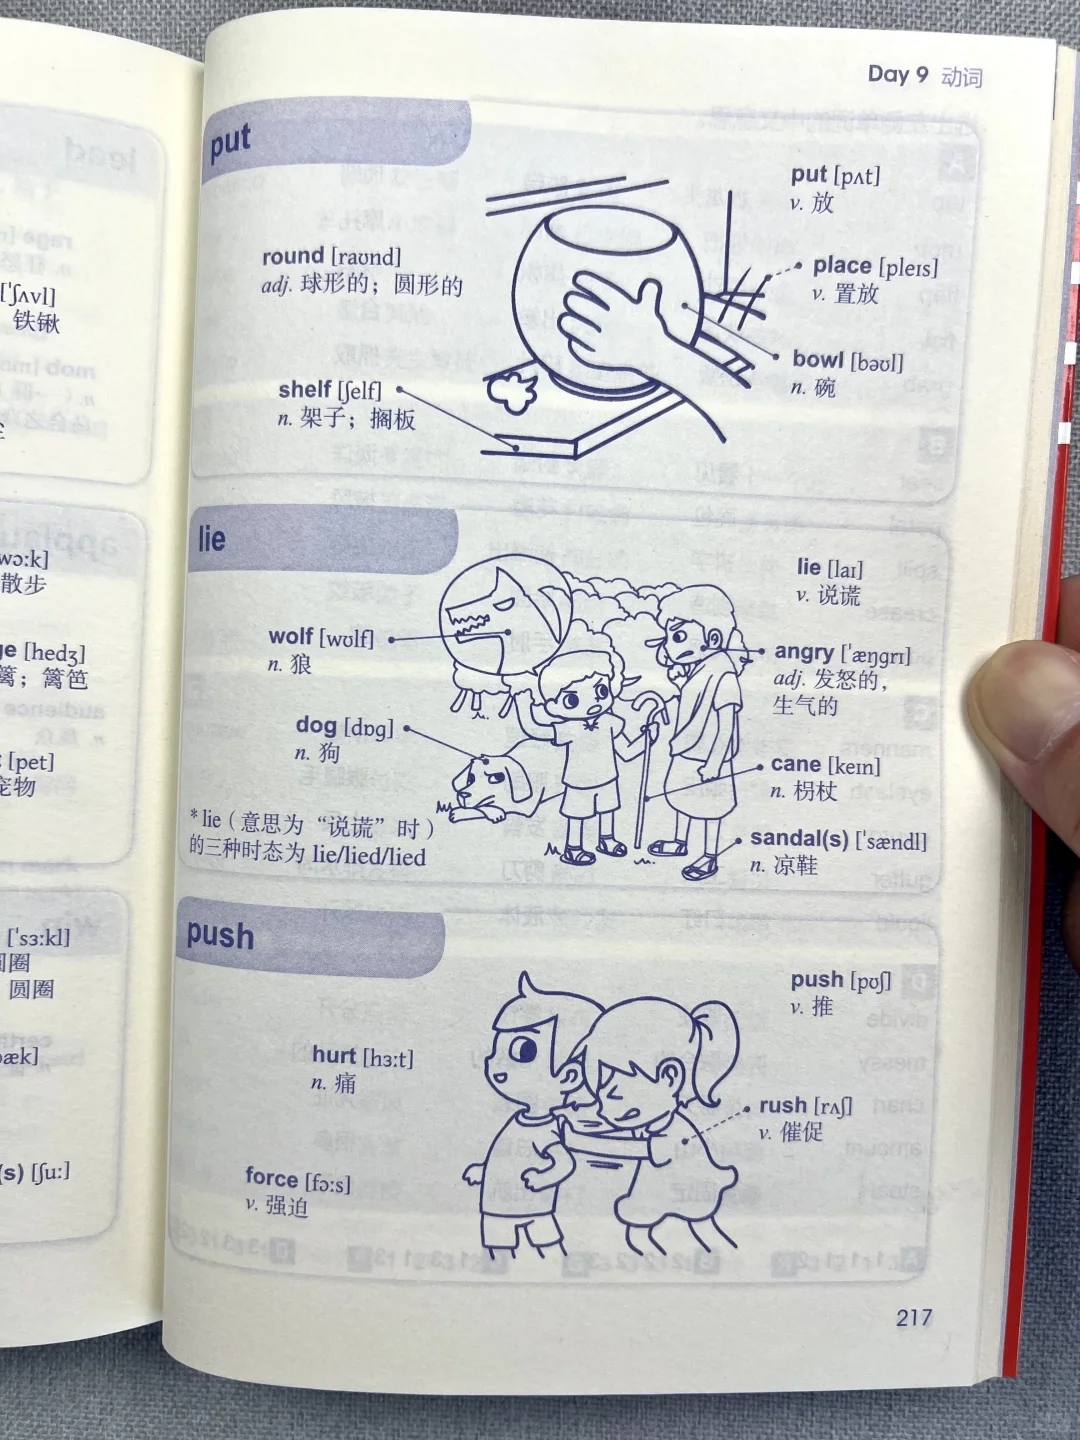 ['ʃʌvl]
铁锹
散步
[hedʒ]
篱笆
[pet]
宠物
['sɜːkl]
圆圈
(s) [ʃuː]
Day 9 动词
put
put [pʌt]
v. 放
round [raʊnd]
adj. 球形的；圆形的
place [pleɪs]
v. 置放
bowl [bəʊl]
n. 碗
shelf [ʃelf]
n. 架子；搁板
lie
lie [laɪ]
v. 说谎
wolf [wʊlf]
n. 狼
angry ['æŋgrɪ]
adj. 发怒的，
生气的
dog [dɒg]
n. 狗
cane [keɪn]
n. 拐杖
* lie（意思为“说谎”时）
的三种时态为 lie/lied/lied
sandal(s) ['sændl]
n. 凉鞋
push
push [pʊʃ]
v. 推
hurt [hɜːt]
n. 痛
rush [rʌʃ]
v. 催促
force [fɔːs]
v. 强迫
217